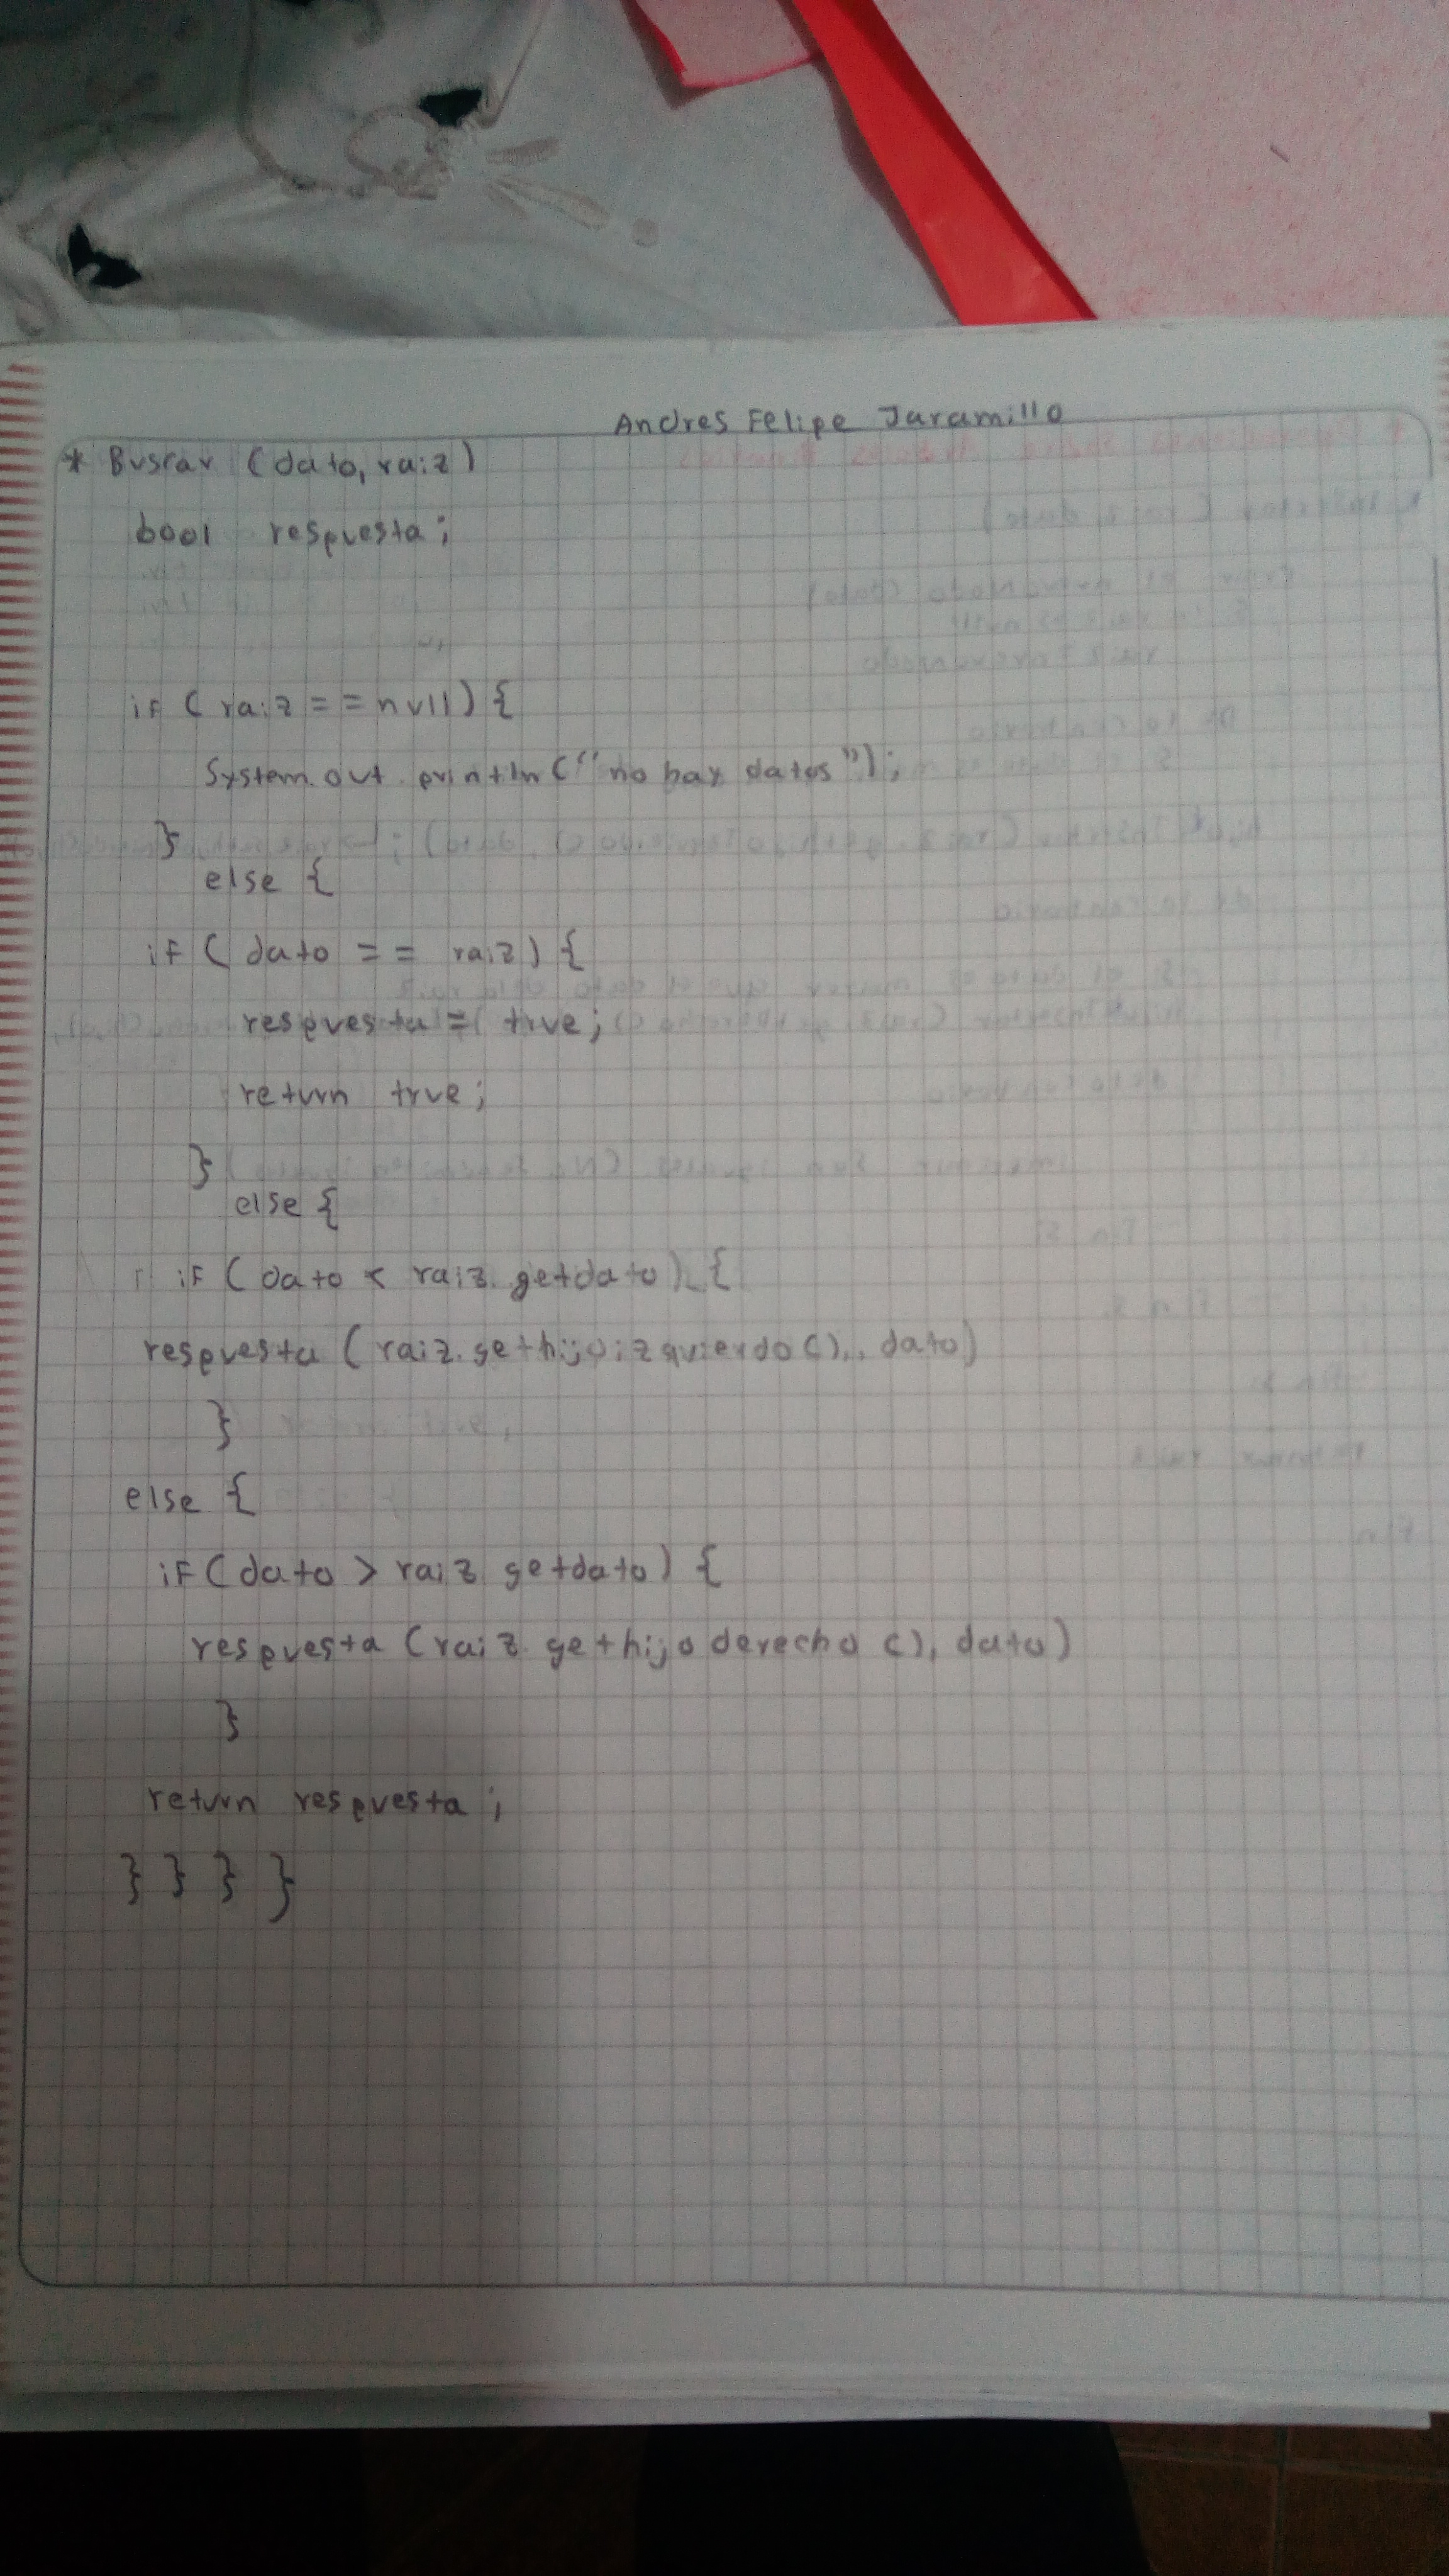 Andres Felipe Jaramillo
* Buscar (dato, raiz)
bool respuesta;
if (raiz == null) {
System.out.println("no hay datos");
}
else {
if (dato == raiz) {
respuesta = true;
return true;
}
else {
if (dato < raiz.getdato) {
respuesta (raiz.gethijoizquierdo(), dato)
}
else {
if (dato > raiz.getdato) {
respuesta (raiz.gethijoderecho(), dato)
}
return respuesta;
} } } }